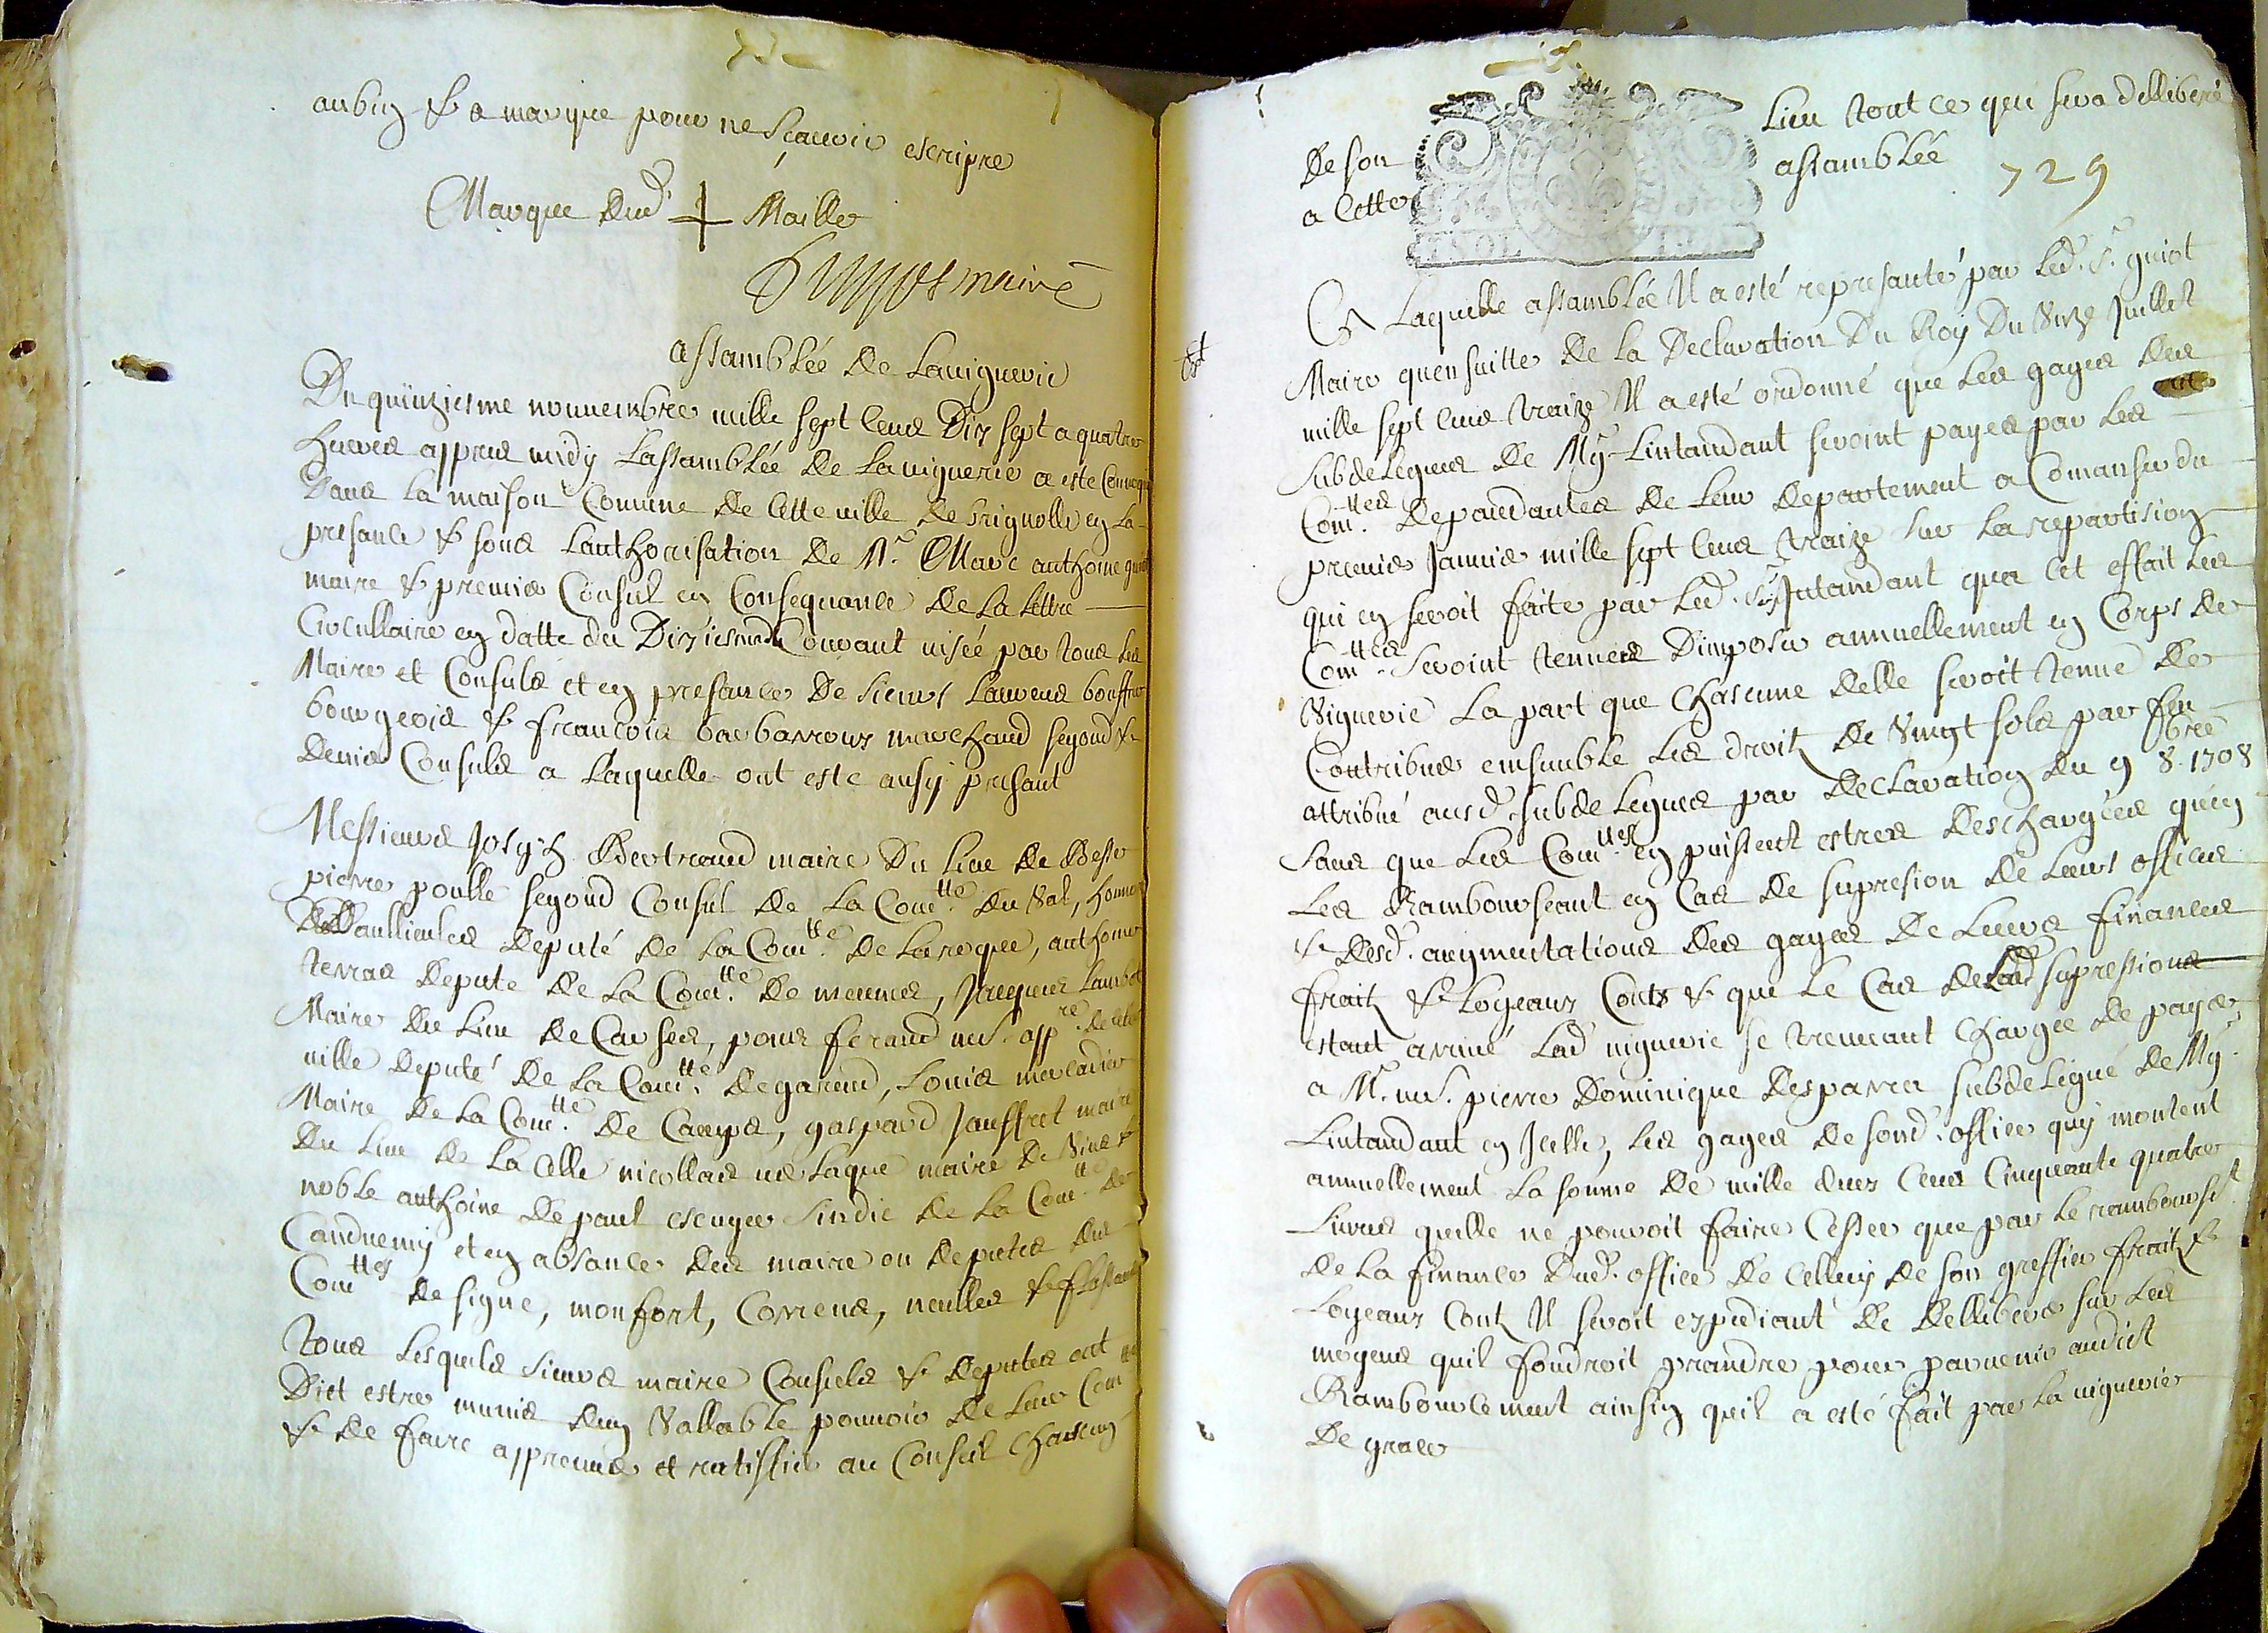 aubin & a marque pour ne scauoir escripre
Marque dud. + Maille
maire
assamblée de Lauiguerie
Du quinziesme nouuembre mille sept cens dix sept a quatre
heures appres midy Lassamblée de Lauiguerie a esté Conuoqu
dans La maison Comune de cette ville de brignolle en La
presance & sous Lauthorisation de Mr. Marc anthoine guiot
maire & premier Consul en Consequance de La Lettre
Circullaire en datte du Dixiesme du Courant visée par tous Les
Maire et Consuls et en presance de sieurs Laurens bouffier
bourgeois & francois barbarroux marchand segond &
dernier Consuls a Laquelle ont esté ausy presant
Messieurs Joseph Bertrand maire Du Lieu de Besse
pierre poulle segond Consul de La Comtté. du Val, honnoré
deputé de La Comtté. de Laroque, anthoine
terras depute de La Comtté. de meounes, Jacques Lambot
Maire du Lieu de Carses, pour feraud me. appre. de cette
ville deputé de La Comtté. de gareoud, Louis mercadier
Maire de La Comtté. de Camps, gaspard Jauffret maire
Du Lieu de La Celle nicollas maire de Vins &
noble anthoine de paul escuyer sindic de La Comtté. de
Canduemy et en absance des maire ou deputés des
Comttes de signe, monfort, Correns, neulles & flassans
Tous Lesquels sieurs maire Consuls & deputés ont
Dict estre munis dun Vallable pouuoir de Leur Com
& de faire appreuuer et ratiffier au Conseil chascun
De son Lieu tout ce qui sera delliberé
a Cette assamblée
729
En Laquelle assamblée Il a esté represanté par Led. Sr. guiot
Maire quensuitte de La Declaration Du Roy Du Juillet
mille sept cens traize Il a esté ordonné que Les gages des
Subdelegues de Mgr Lintandant seroint payés par Les
Comttés. dependantes de Leur departement a Comanser du
premier Januier mille sept cens traize sur La repartision
qui en seroit faite par Led. sgr Intandant qua cet effait Les
Comttés. seroint tenues Dimposer annuellement en Corps de
Viguerie La part que Chascune delle seroit tenue de
Contribuer ensemble Les droitz de Vingt sols par feu
attribué ausd. subdelegues par declaration du 9 8.bre 1708
sans que Les Comttes. en puissent estres deschargées quen
Les Rambourseant en Cas de supresion de Leurs offices
& desd. augmentations des gages de Leurs finances
fraitz & Loyeaux Couts & que Le Cas de Lad supression
estant arriué Lad viguerie se treuuant Chargée de payer
a Mr. me. pierre Dominique Desparra subdelegué de Mgr.
Lintandant en Icelle, Les gages de sond. office quy montent
annuellement La somme de mille deux Cens Cinquante quatre
Liures quelle ne pouuoit faire Cesser que par Le rambourset.
de La finance Dud. office de Celluy de son greffier fraitz &
Loyeaux Coutz Il seroit expediant de delliberer sur Les
moyens quil foudroit prandre pour paruenir audict
Rambourcement ainsin quil a esté fait par La viguerie
De grace